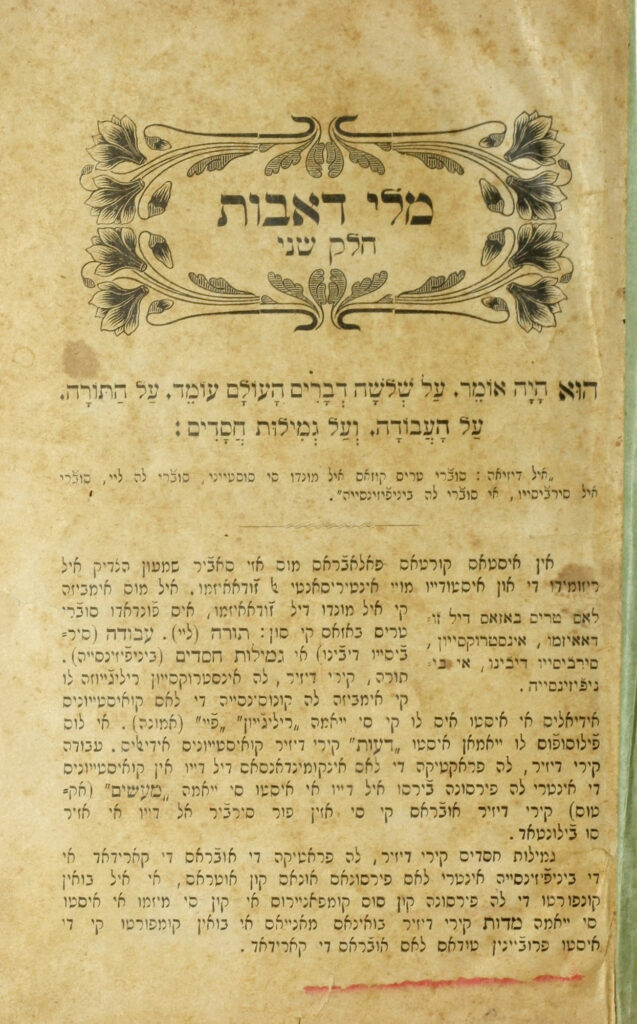 מלי דאבות
חלק שני
הוּא הָיָה אוֹמֵר. עַל שְׁלֹשָׁה דְבָרִים הָעוֹלָם עוֹמֵד. עַל הַתּוֹרָה.
עַל הָעֲבוֹדָה. וְעַל גְמִילוּת חֲסָדִים:
„איל דיזיאה: סוב֘רי טריס קוזאס איל מונדו סי סוסטייני, סוב֘רי לה ליי, סוב֘רי
איל סירב֘יסייו, אי סוב֘רי לה ביניפ֘יזינסייה".
אין איסטאס קורטאס פאלאב֘ראס מוס אזי סאב֘יר שמעון הצדיק איל
ריזומידו די און איסטודייו מויי אינטיריסאנטי ז֘ודאאיזמו. איל מוס אימביזה
קי איל מונדו דיל ז֘ודאאיזמו, איס פ֘ונדאדו סוב֘רי
טריס באזאס קי סון: תורה (ליי). עבודה (סיר־
ב֘יסייו דיב֘ינו) אי גמילות חסדים (ביניפ֘יזינסייה).
תורה, קירי דיזיר, לה אינסטרוקסייון ריליג֘ייוזה לו
קי אימביזה לה קונסינסייה די לאס קואיסטייוניס
לאס טריס באזאס דיל ז֘ו־
דאאיזמו, אינסטרוקסייון,
סירב֘יסייו דיב֘ינו, אי בי־
ניפ֘יזינסייה.
אידיאליס אי איסטו איס לו קי סי ייאמה „ריליג֘ייון" „פ֘יי" (אמונה). אי לוס
פ֘ילוסופ֘וס לו ייאמאן איסטו „דעות" קירי דיזיר קואיסטייוניס אידיאליס. עבודה
קירי דיזיר, לה פראקטיקה די לאס אינקומינדאנסאס דיל דייו אין קואיסטייוניס
די אינטרי לה פירסונה ב֘ירסו איל דייו אי איסטו סי ייאמה „מעשים" (אק־
טוס) קירי דיזיר אוב֘ראס קי סי אזין פור סירב֘יר אל דייו אי אזיר
סו ב֘ילונטאד.
גמילות חסדים קירי דיזיר, לה פראטיקה די אוב֘ראס די קארידאד אי
די ביניפ֘יזינסייה אינטרי לאס פירסונאס אונאס קון אוטראס, אי איל בואין
קונפורטו די לה פירסונה קון סוס קומפאנייירוס אי קון סי מיזמו אי איסטו
סי ייאמה מדות קירי דיזיר בואינאס מאנייאס אי בואין קומפורטו קי די
איסטו פרוב֘יינין טודאס לאס אוב֘ראס די קארידאד.